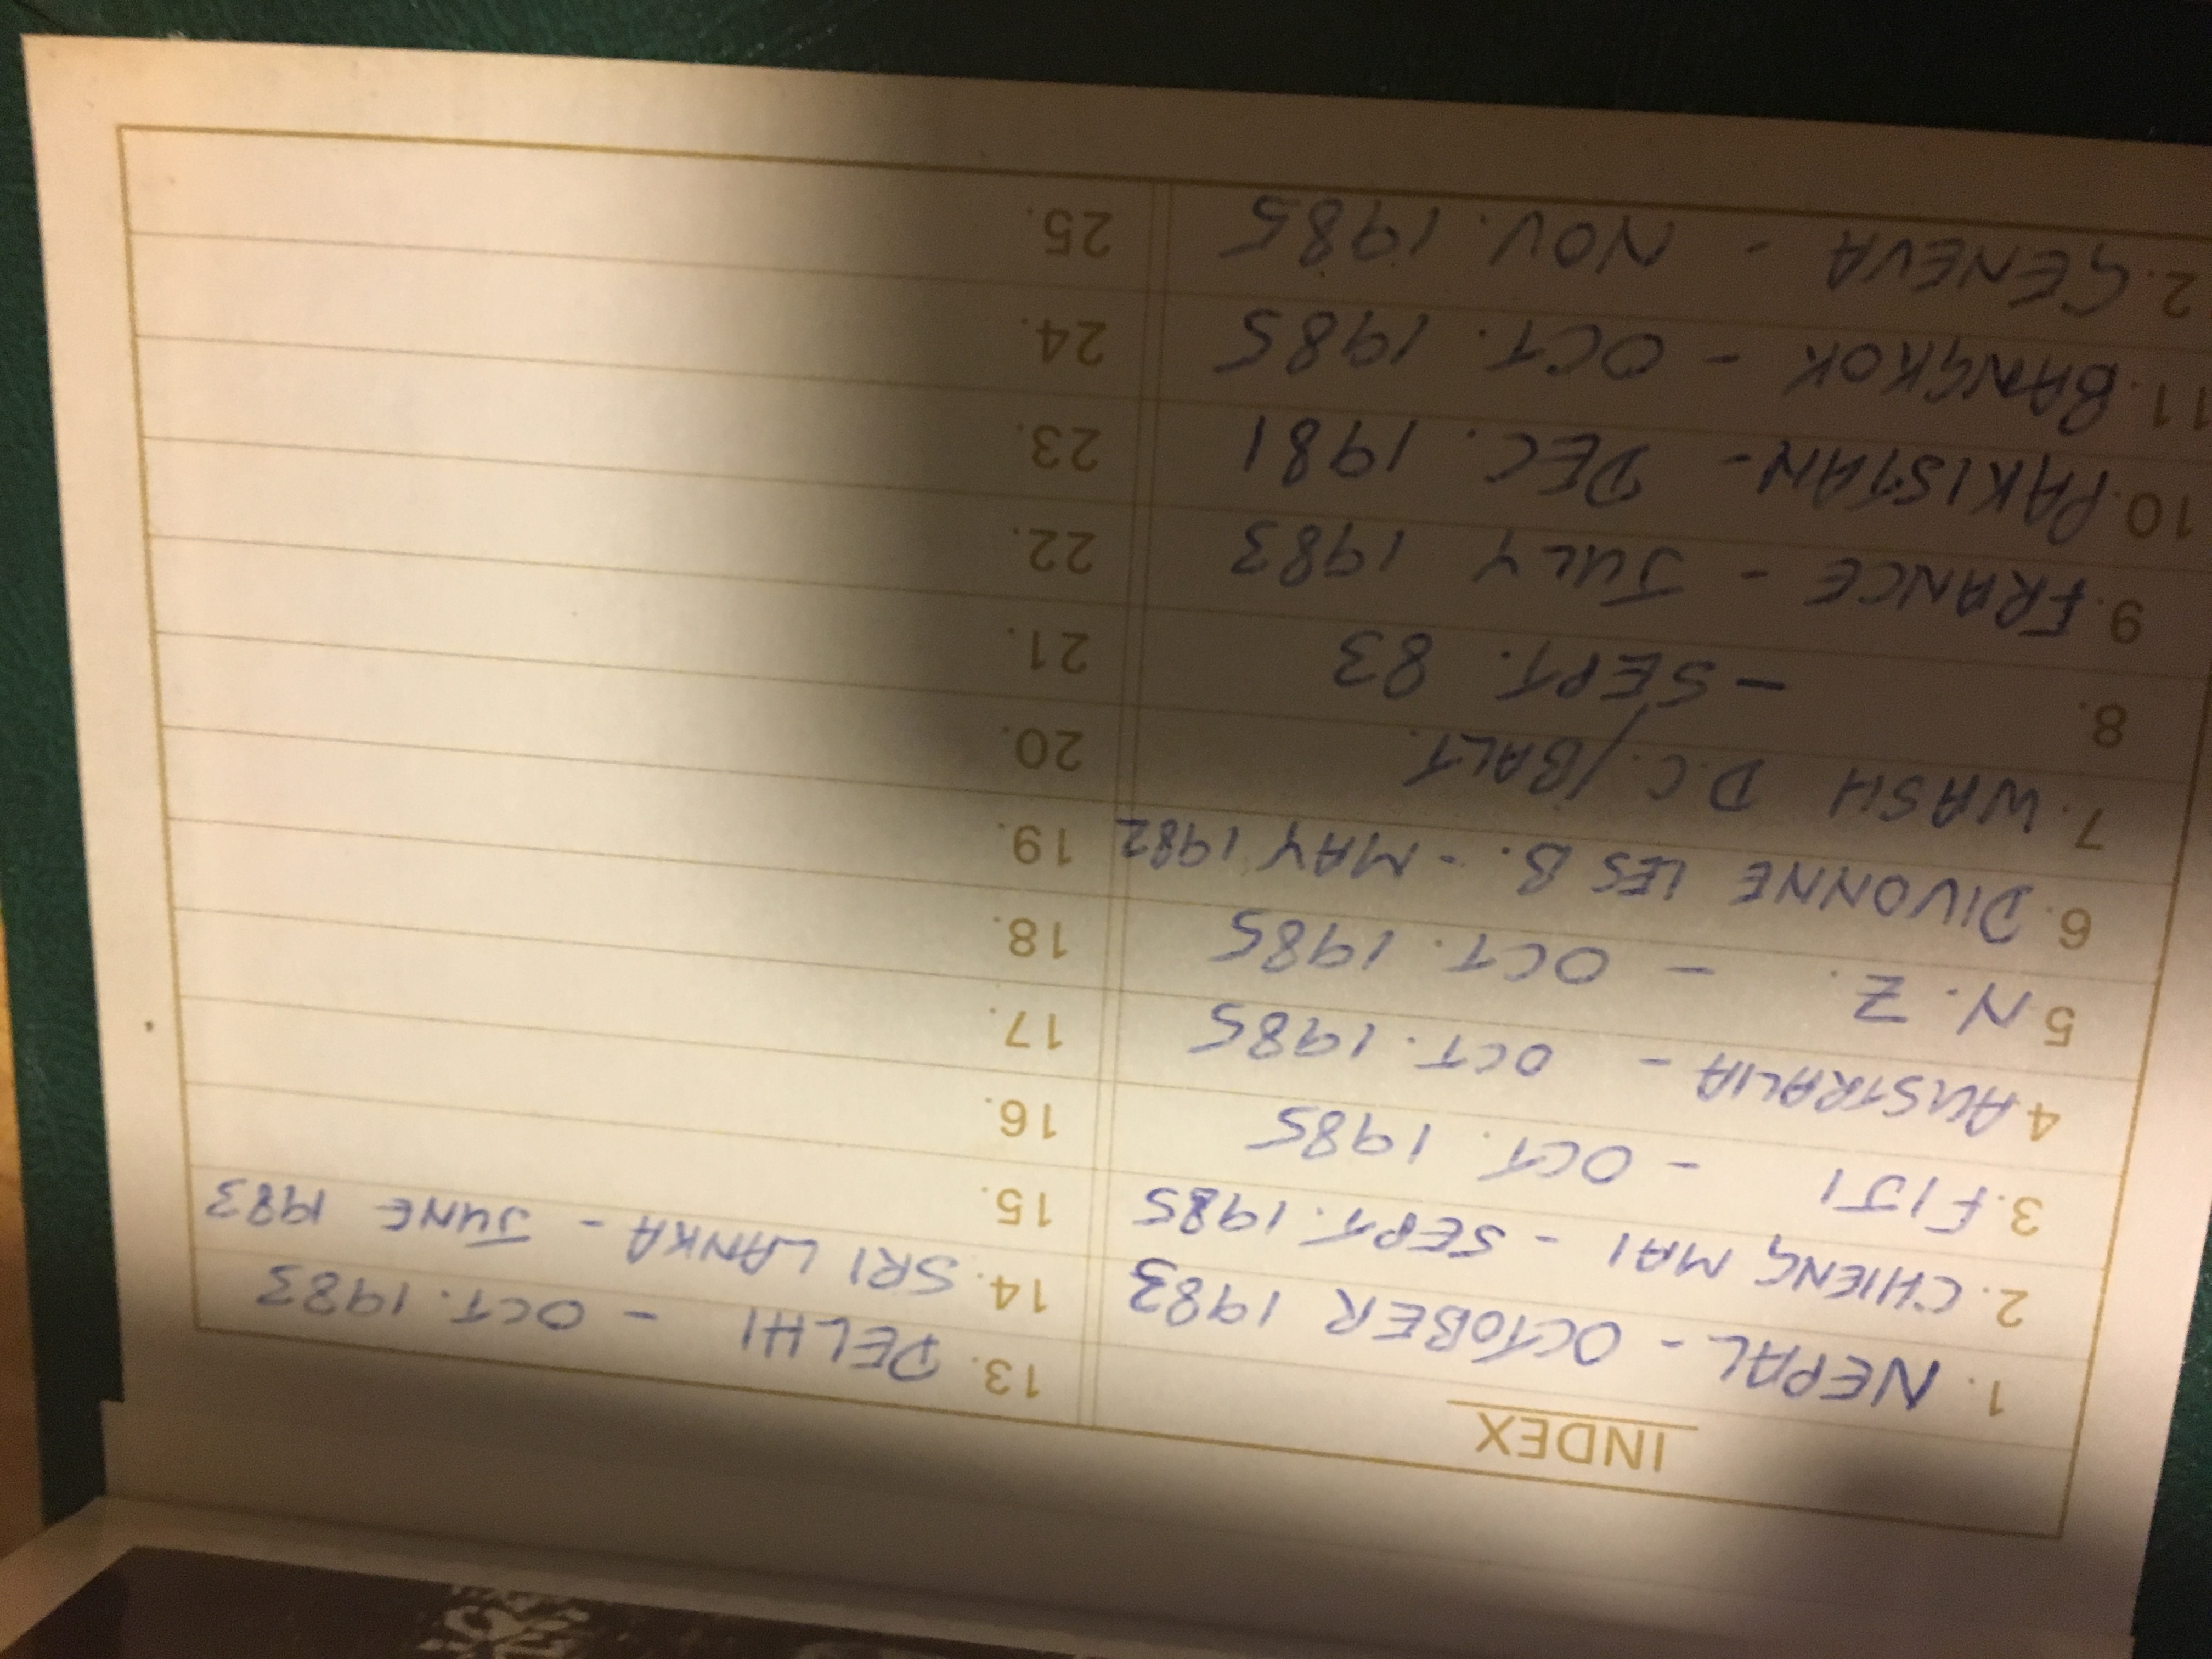 INDEX
1. NEPAL - OCTOBER 1983
2. CHIENG MAI - SEPT. 1985
3. FIJI - OCT. 1985
4. AUSTRALIA - OCT. 1985
5. N. Z. - OCT. 1985
6. DIVONNE LES B. - MAY 1982
7. WASH D.C./BALT.
8. - SEPT. 83
9. FRANCE - JULY 1983
10. PAKISTAN - DEC. 1981
11. BANGKOK - OCT. 1985
2. GENEVA - NOV. 1985
13. DELHI - OCT. 1983
14. SRI LANKA - JUNE 1983
15.
16.
17.
18.
19.
20.
21.
22.
23.
24.
25.